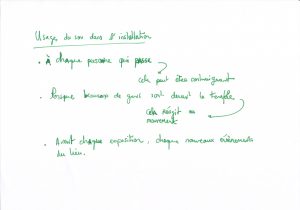 Usages du son dans l'installation
• À chaque personne qui passe
cela peut être contraignant
• Lorsque beaucoup de gens sont devant le
cela réagit au
mouvement
• Avant chaque exposition, chaque nouveaux évènements
du lieu.